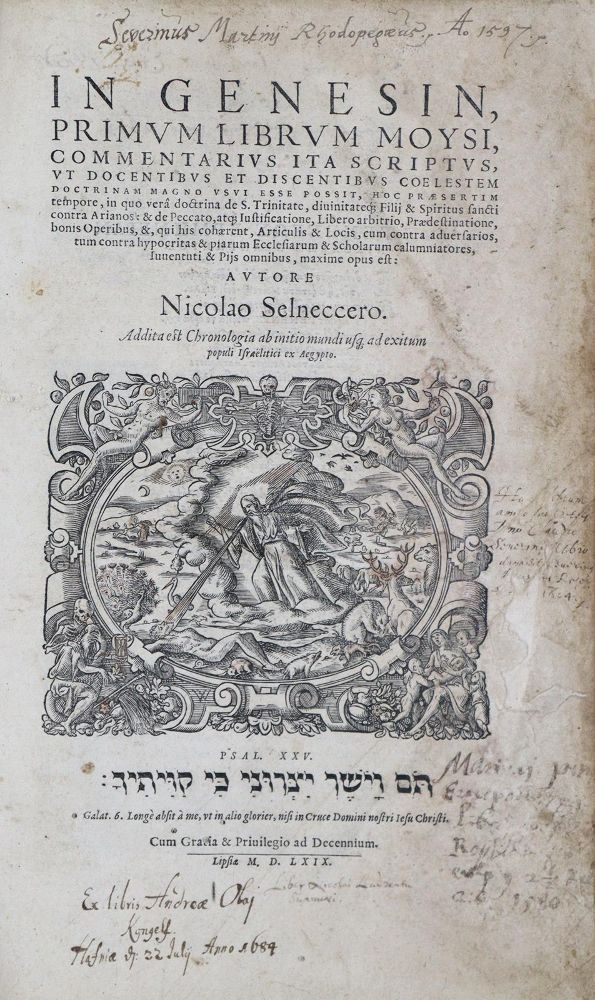 Severinus Martinij Rhodopegæus. Ao 1597.
IN GENESIN,
PRIMVM LIBRVM MOYSI,
COMMENTARIVS ITA SCRIPTVS,
VT DOCENTIBVS ET DISCENTIBVS COELESTEM
DOCTRINAM MAGNO VSVI ESSE POSSIT, HOC PRÆSERTIM
tempore, in quo verâ doctrina de S. Trinitate, diuinitateq; Filij & Spiritus sancti
contra Arianos: & de Peccato, atq; Iustificatione, Libero arbitrio, Prædestinatione,
bonis Operibus, &, qui his cohærent, Articulis & Locis, cum contra aduersarios,
tum contra hypocritas & piarum Ecclesiarum & Scholarum calumniatores,
Iuuentuti & Pijs omnibus, maxime opus est:
AVTORE
Nicolao Selneccero.
Addita est Chronologia ab initio mundi usq; ad exitum
populi Israëlitici ex Aegypto.
PSAL. XXV.
תֹּם וָיֹשֶׁר יִצְּרוּנִי כִּי קִוִּיתִיךָ:
Galat. 6. Longè absit à me, vt in alio glorier, nisi in Cruce Domini nostri Iesu Christi.
Cum Gratia & Priuilegio ad Decennium.
Lipsiæ M. D. LXIX.
Ex libris Andreæ Olaj
Kongelf.
Hafniæ d. 22 Julij Anno 1684